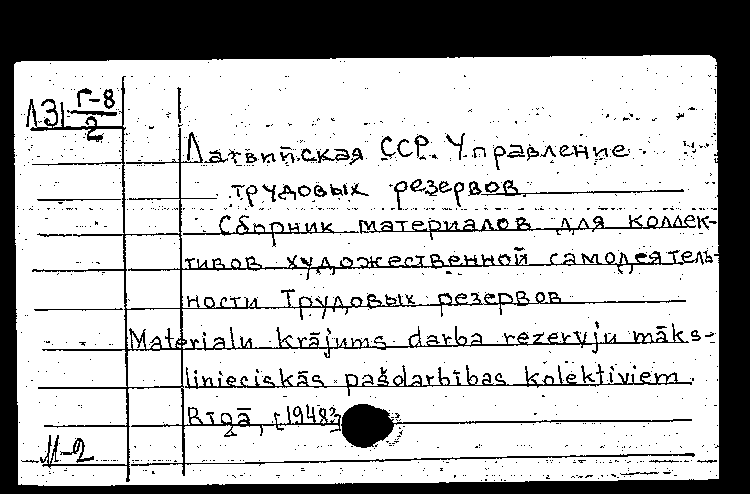 ЛЗ1 Г-8
2
Латвийская ССР. Управление
трудовых резервов.
Сборник материалов для коллек-
тивов художественной самодеятель-
ности Трудовых резервов
Materialu krājums darba rezervju māks-
linieciskās pašdarbības kolektiviem.
Rīgā, [1948]
2
M-2